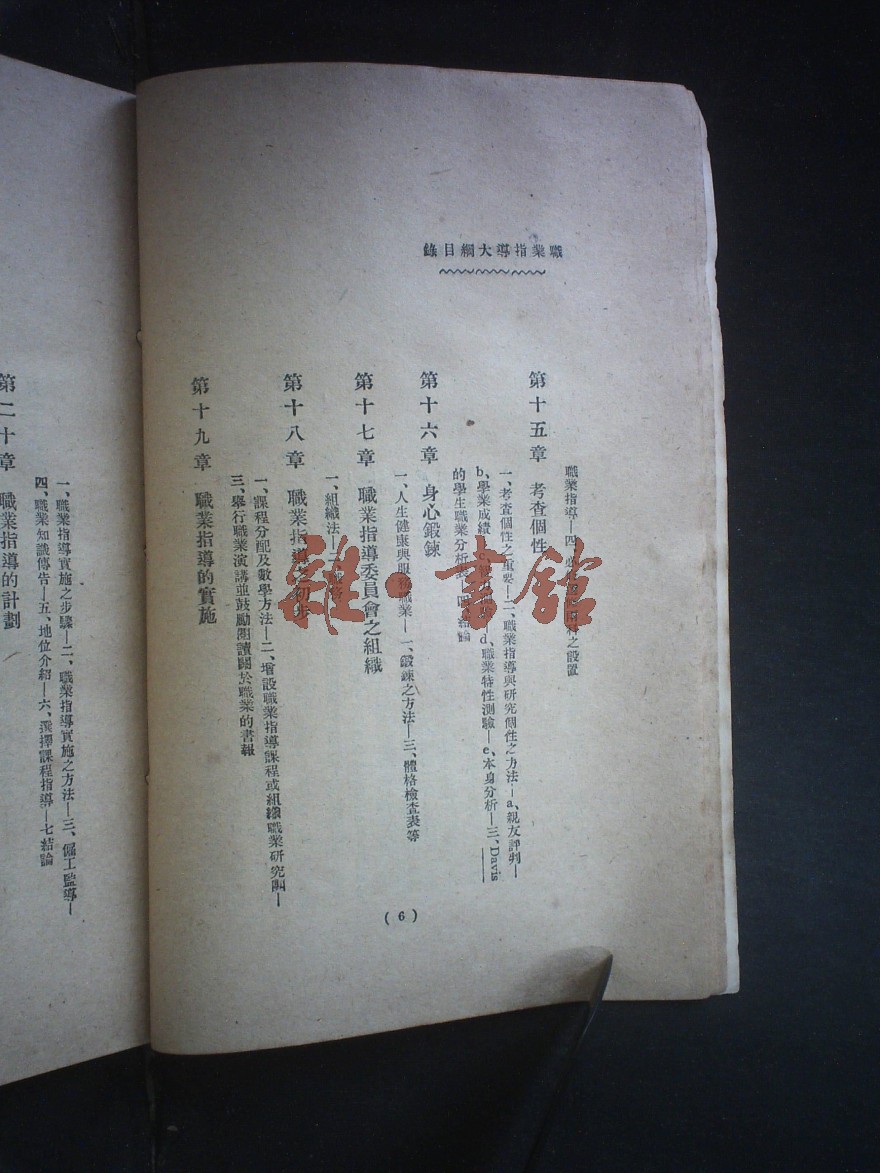 職業指導大綱目錄
職業指導—四、必
科之設置
第十五章 考查個性
一、考查個性之重要—二、職業指導與研究個性之方法—a、親友評判—
b、學業成績—
d、職業特性測驗—e、本身分析—三、Davis
的學生職業分析表—四、結論
第十六章 身心鍛鍊
一、人生健康與服務職業—二、鍛鍊之方法—三、體格檢查表等
第十七章 職業指導委員會之組織
一、組織法—
第十八章 職業指導之初步
一、課程分配及教學方法—二、增設職業指導課程或組織職業研究團—
三、舉行職業演講並鼓勵閱讀關於職業的書報
第十九章 職業指導的實施
一、職業指導實施之步驟—二、職業指導實施之方法—三、傭工監導—
四、職業知識傳告—五、地位介紹—六、選擇課程指導—七結論
第二十章 職業指導的計劃
(6)
雜·書館